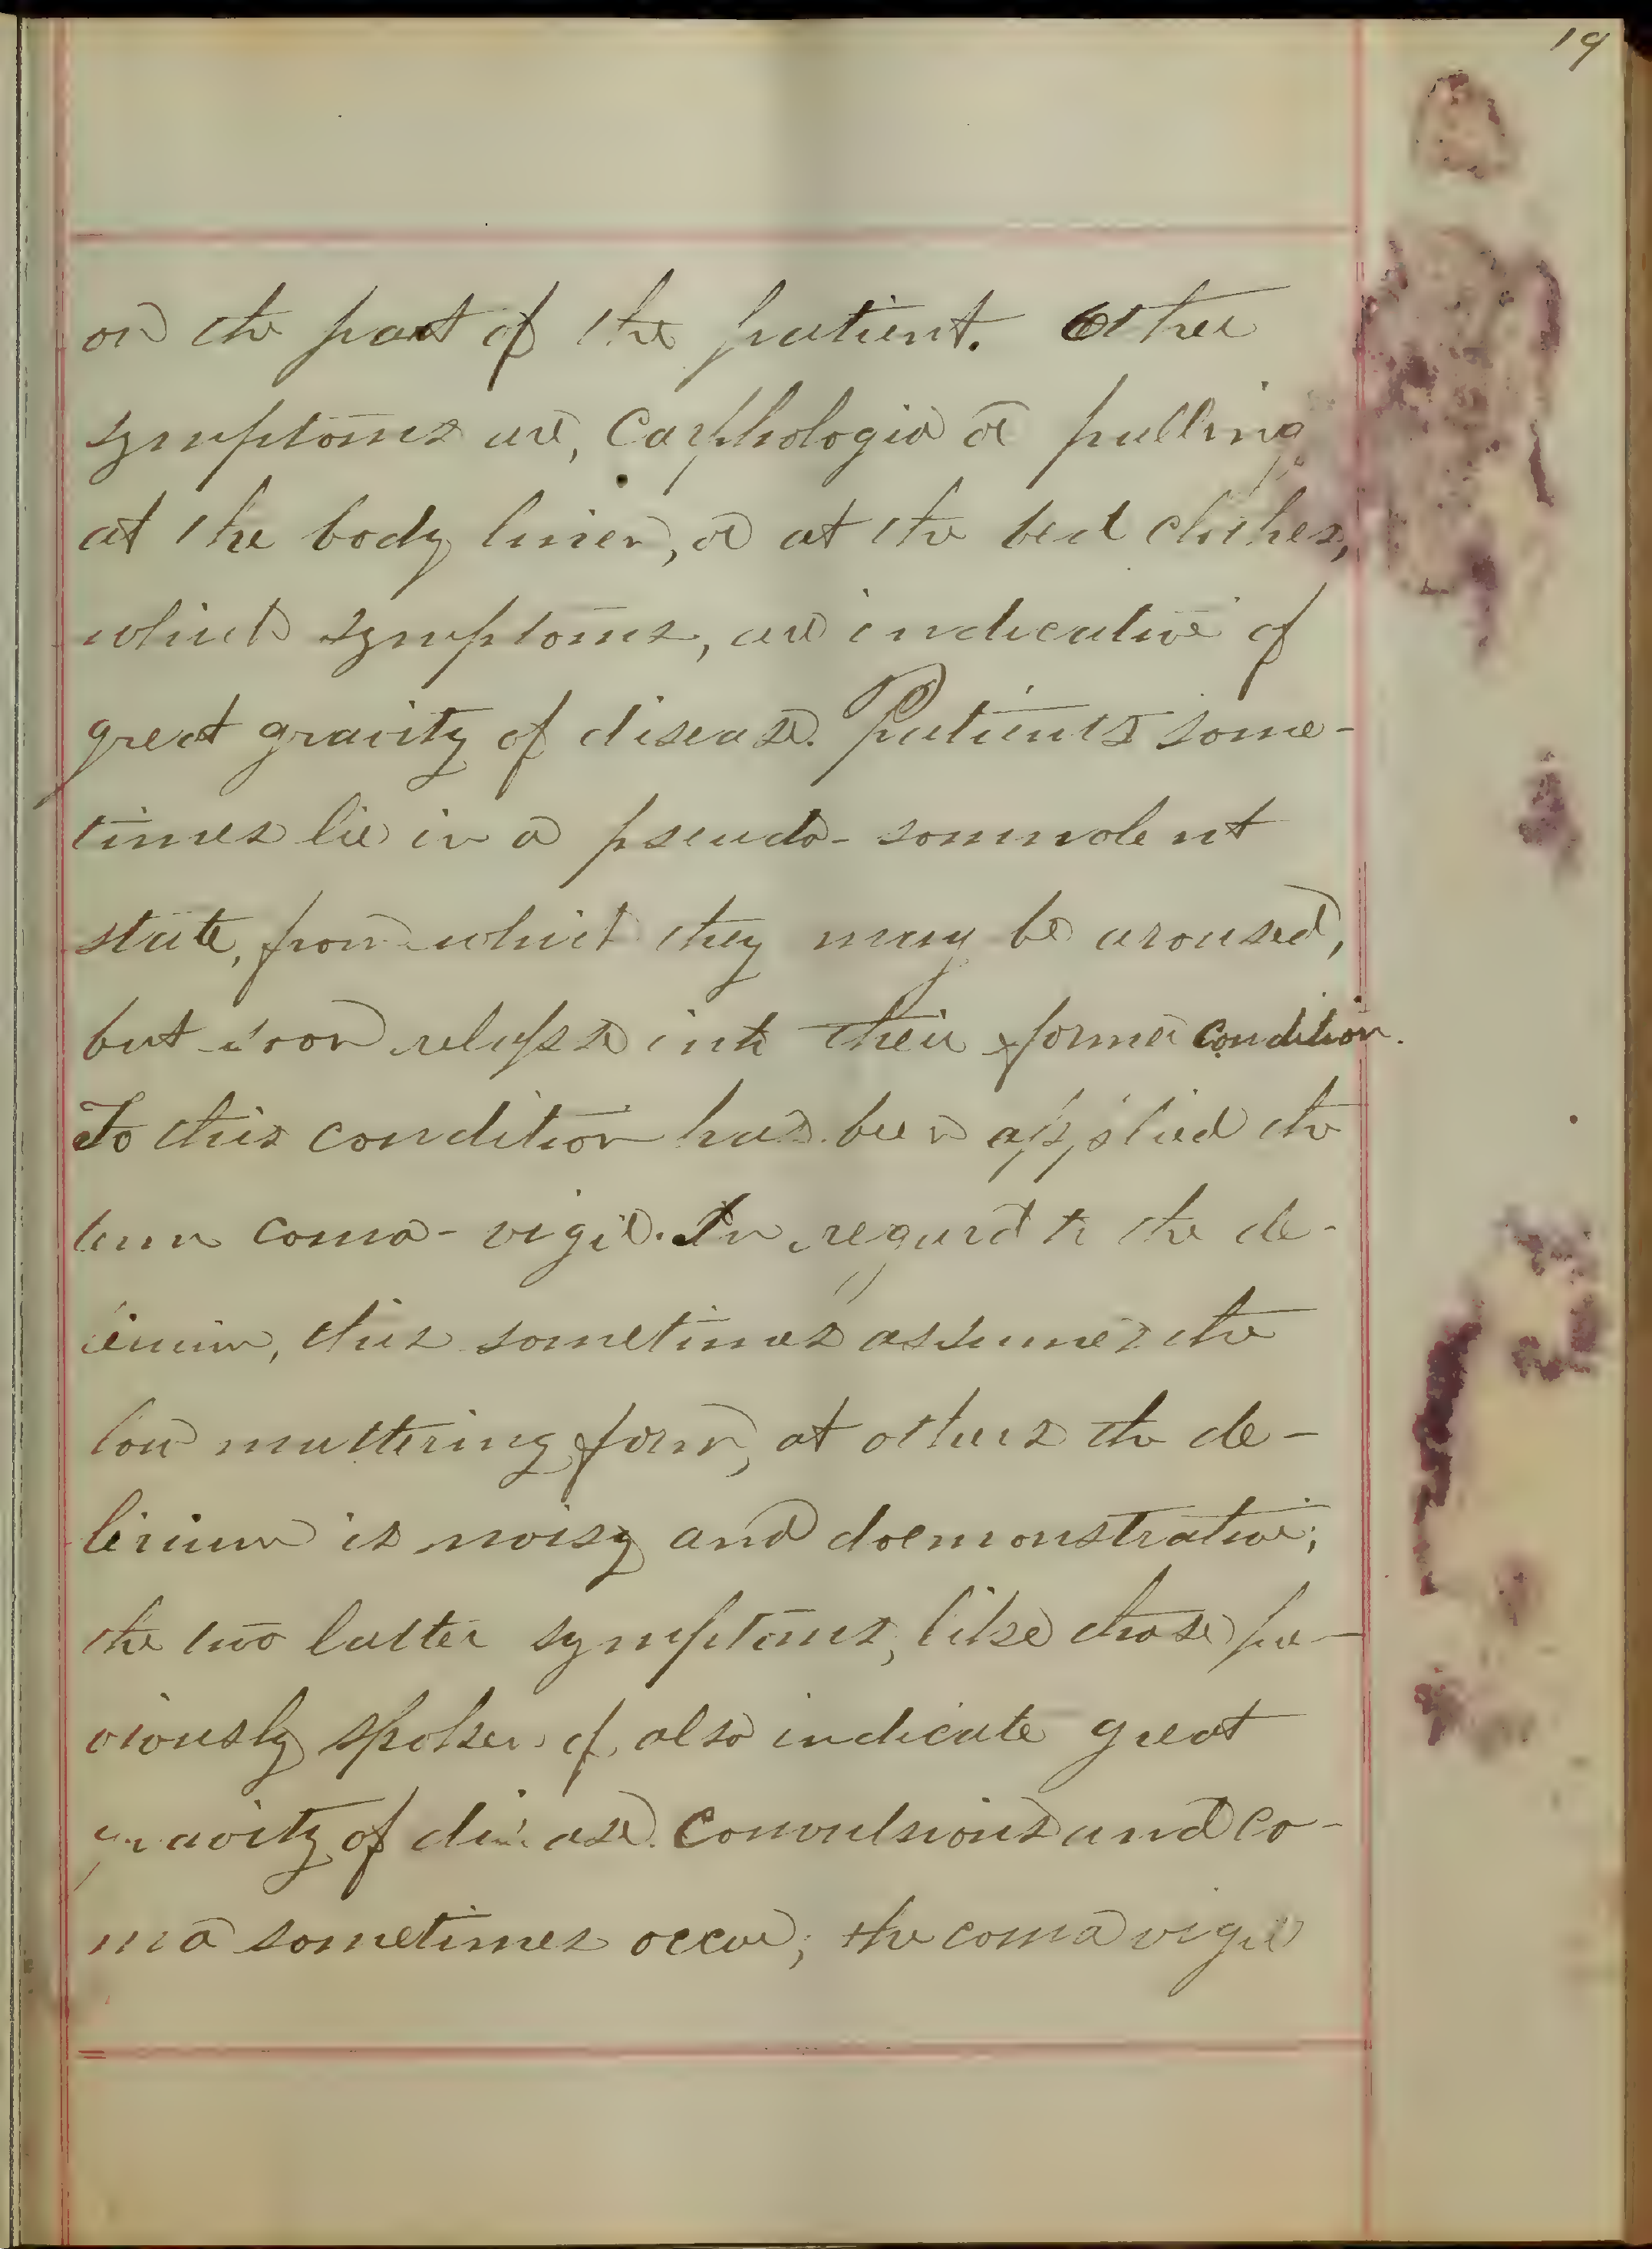 19
on the part of the patient. Other
symptoms are, Carphologia or pulling
at the body linen, or at the bed clothes,
which symptoms, are indicative of
great gravity of disease. Patients some-
times lie in a pseudo-somnolent
state, from which they may be aroused,
but soon relapse into their former condition.
To this condition has been applied the
term coma-vigil. In regard to the de-
lirium, this sometimes assumes the
low muttering form, at others the de-
lirium is noisy and doemonstrative;
the two latter symptoms, like those pre-
viously spoken of, also indicate great
gravity of disease. Convulsions and co-
ma sometimes occur; the coma vigil